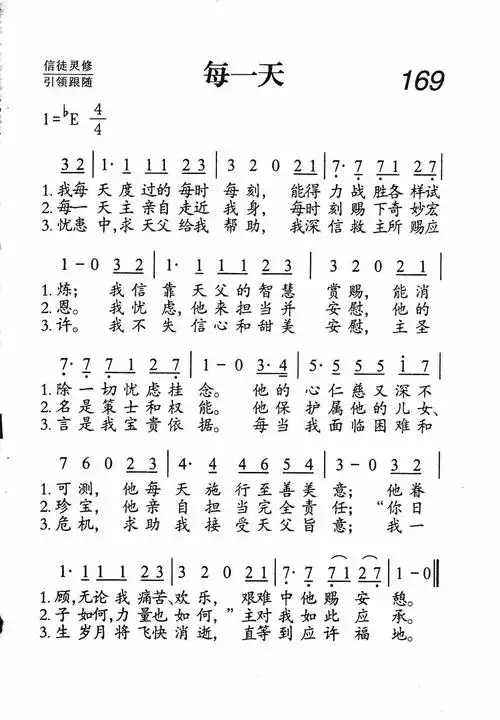 信徒灵修
引领跟随
每一天
169
1=♭E 4/4
3 2 | 1· 1 1 1 2 3 | 3 2 0 2 1 | 7· 7 7 1 2 7 |
1.我每 天度过的每时 每刻， 能得力战胜各样试
2.每一 天主亲自走近 我身， 每时刻赐下奇妙宏
3.忧患 中，求天父给我 帮助， 我深信救主所赐应
1 - 0 3 2 | 1· 1 1 1 2 3 | 3 2 0 2 1 |
1.炼； 我信靠天父的智慧 赏赐， 能消
2.恩。 我忧虑，他来担当并 安慰， 他的
3.许。 我不失信心和甜美 安慰， 主圣
7· 7 7 1 2 7 | 1 - 0 3· 4 | 5· 5 5 5 1 7 |
1.除一切忧虑挂念。 他的心仁慈又深不
2.名是策士和权能。 他保护属他的儿女、
3.言是我宝贵依据。 每当我面临困难和
7 6 0 2 3 | 4· 4 4 6 5 4 | 3 - 0 3 2 |
1.可测， 他每天施行至善美意； 他眷
2.珍宝， 他亲自担当完全责任；“你日
3.危机， 求助我接受天父旨意； 我一
1· 1 1 1 2 3 | 3 2 0 2 1 | 7· 7 7 1 2 7 | 1 - 0 ‖
1.顾，无论我痛苦、欢乐， 艰难中他赐安憩。
2.子如何，力量也如何，”主对我如此应承。
3.生岁月将飞快消逝， 直等到应许福地。